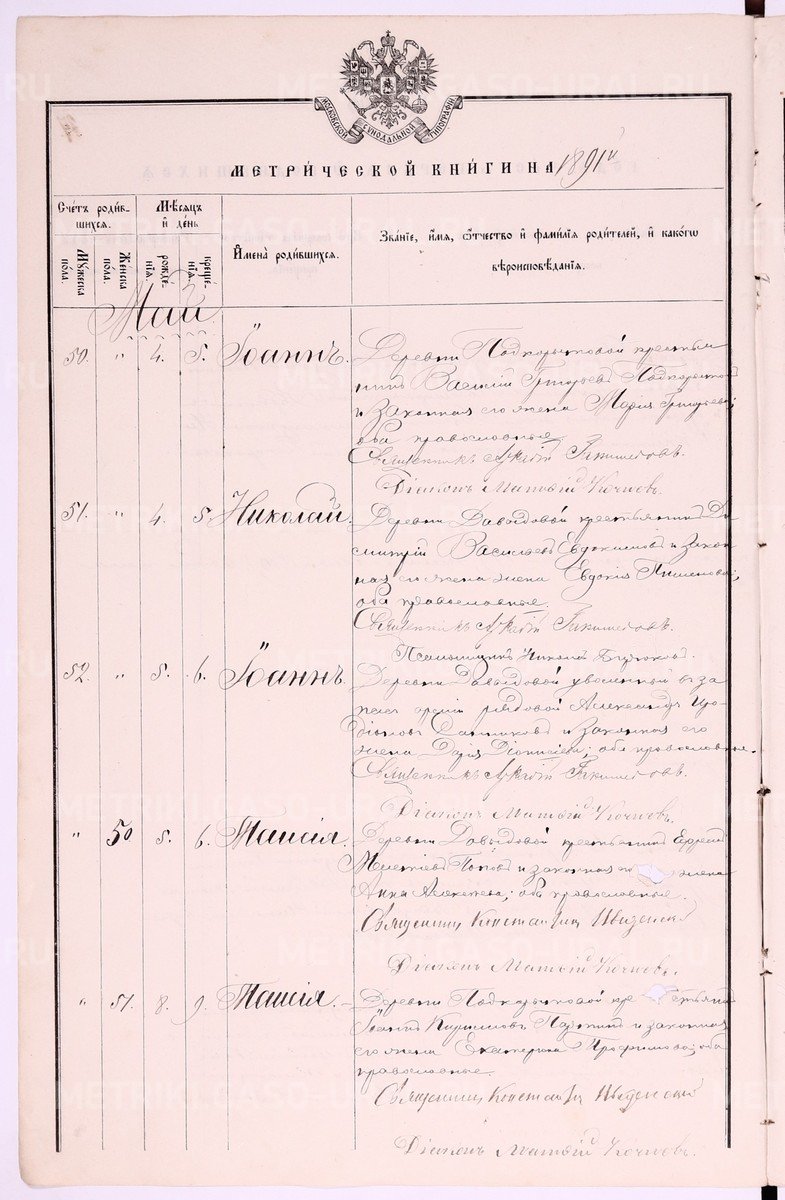 МОСКОВСКОЙ СѴНОДАЛЬНОЙ ТИПОГРАФІИ
МЕТРИ́ЧЕСКОЙ КНИ́ГИ НА 1891й
Сче́тъ роди́в-
шихся.
Мѣ́сяцъ
и҆ де́нь
Мꙋ́жеска
по́ла.
Же́нска
по́ла.
рожде́-
нїя.
креще́-
нїя.
И҆мена̀ роди́вшихся.
Зва́нїе, и҆́мя, ѻ҆́тчество и҆ фами́лїя роди́телей, и҆ како́гѡ
вѣроисповѣ́данїя.
Май
50. " 4. 5. Іоаннъ. Деревни Подкорытовой крестья-
нинъ Василій Григорьевъ Подкорытовъ
и законная его жена Марія Григорьева;
оба православные.
Священникъ
Діаконъ Матѳій Кочневъ.
51. " 4. 5. Николай. Деревни Давыдовой крестьянинъ Ди-
митрій Васильевъ Евдокимовъ и закон-
ная его жена Евдокія Пименова;
оба православные.
Священникъ
Псаломщикъ Николай
52. " 5. 6. Іоаннъ. Деревни Давыдовой уволенный въ за-
пасъ арміи рядовой Александръ Иро-
діоновъ и законная его
жена Дарія Діонисіева; оба православные.
Священникъ
Діаконъ Матѳій Кочневъ.
" 50 5. 6. Таисія. Деревни Давыдовой крестьянинъ Ефремъ
Мелетіевъ Поповъ и законная его жена
Анна Алексѣева; оба православные.
Священникъ Константинъ
Діаконъ Матѳій Кочневъ.
" 51. 8. 9. Таисія. Деревни Подкорытовой крестьянинъ
Іоаннъ Кирилловъ и законная
его жена Екатерина Трофимова; оба
православные.
Священникъ Константинъ
Діаконъ Матѳій Кочневъ.